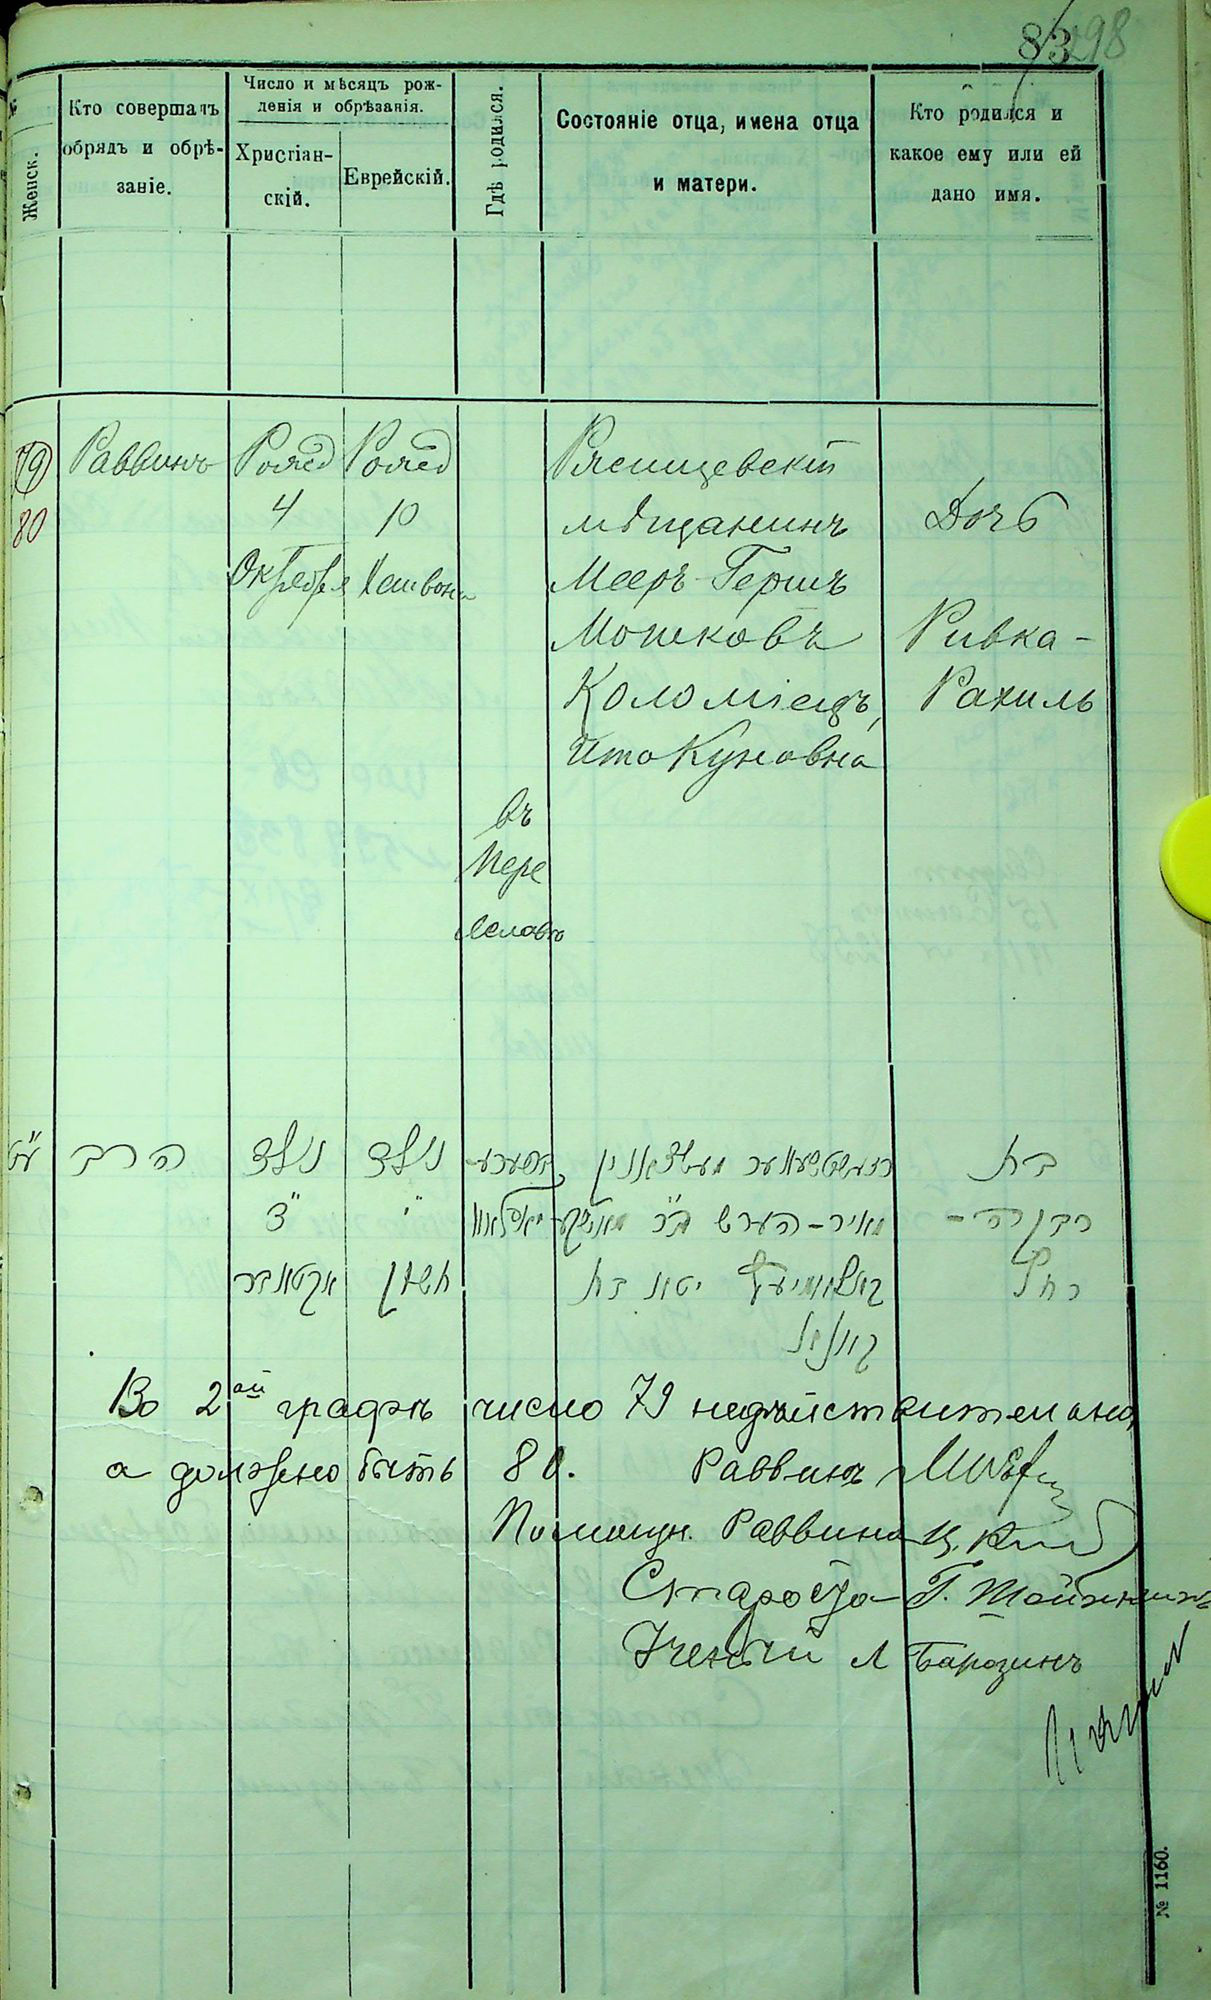 83 298
Женск.
Кто совершалъ
обрядъ и обрѣ-
заніе.
Число и мѣсяцъ рож-
денія и обрѣзанія.
Христіан-
скій.
Еврейскій.
Гдѣ родился.
Состояніе отца, имена отца
и матери.
Кто родился и
какое ему или ей
дано имя.
79
80
Раввинъ
Рожд
4
Октября
Рожд
10
Хешвона
въ
Пере
яславѣ
мѣщанинъ
Мееръ-Гершъ
Мошковъ
Коломіецъ,
Ита Куновна
Дочь
Ривка-
Рахиль
ע״ט
הרב
נולד
ד״
אקטאבר
נולד
י״
חשון
מאיר-הערש ב״ר
יטא בת
בת
רבקה-
רחל
Во 2ой графѣ число 79 недѣйствительно,
а должно быть 80. Раввинъ
Помощн. Раввина
Староста Г.
Ученый Л Барозинъ
№ 1160.